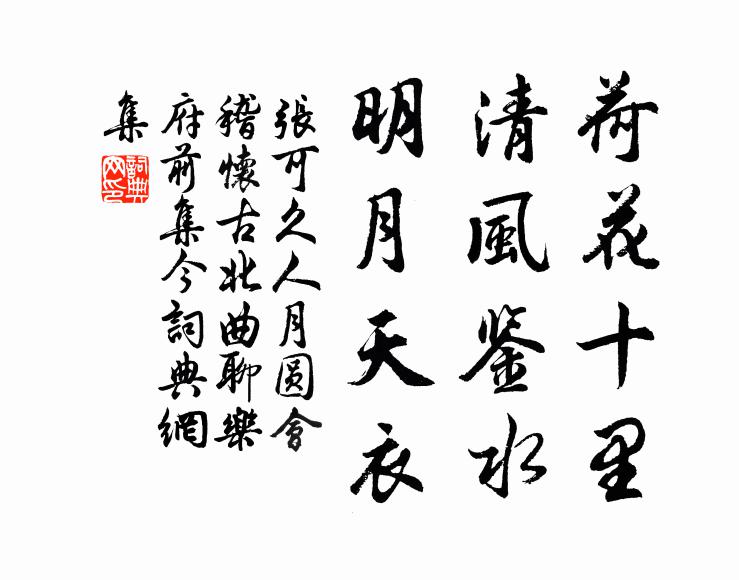 荷花十里
清風鉴水
明月天衣
張可久人月圓會
稽懷古北曲聊樂
府前集今詞典網
集
詞典網印